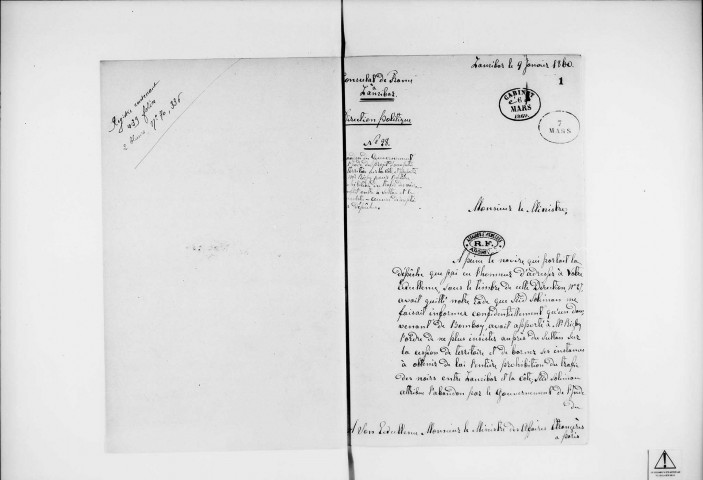 Registre contenant
433 folios
Zanzibar le 9 Janvier 1860.
1
Consulat de France
à
Zanzibar.
Direction Politique
N° 28.
CABINET
6
MARS
1860.
7
MARS
Monsieur le Ministre,
R.F.
A peine le navire qui portait la
dépêche que j'ai eu l'honneur d'adresser à Votre
Excellence sous le timbre de cette Direction, N° 27,
avait quitté notre rade que Séid Soliman me
faisait informer confidentiellement qu'un dow
venant de Bombay, avait apporté à Mr Rigby
l'ordre de ne plus insister auprès du Sultan sur
la cession de territoire et de borner ses instances
à obtenir de lui l'entière prohibition du trafic
des noirs entre Zanzibar et la côte. Séid Soliman
attribue l'abandon par le Gouvernement de l'Inde
du
A Son Excellence Monsieur le Ministre des Affaires Etrangères
à Paris